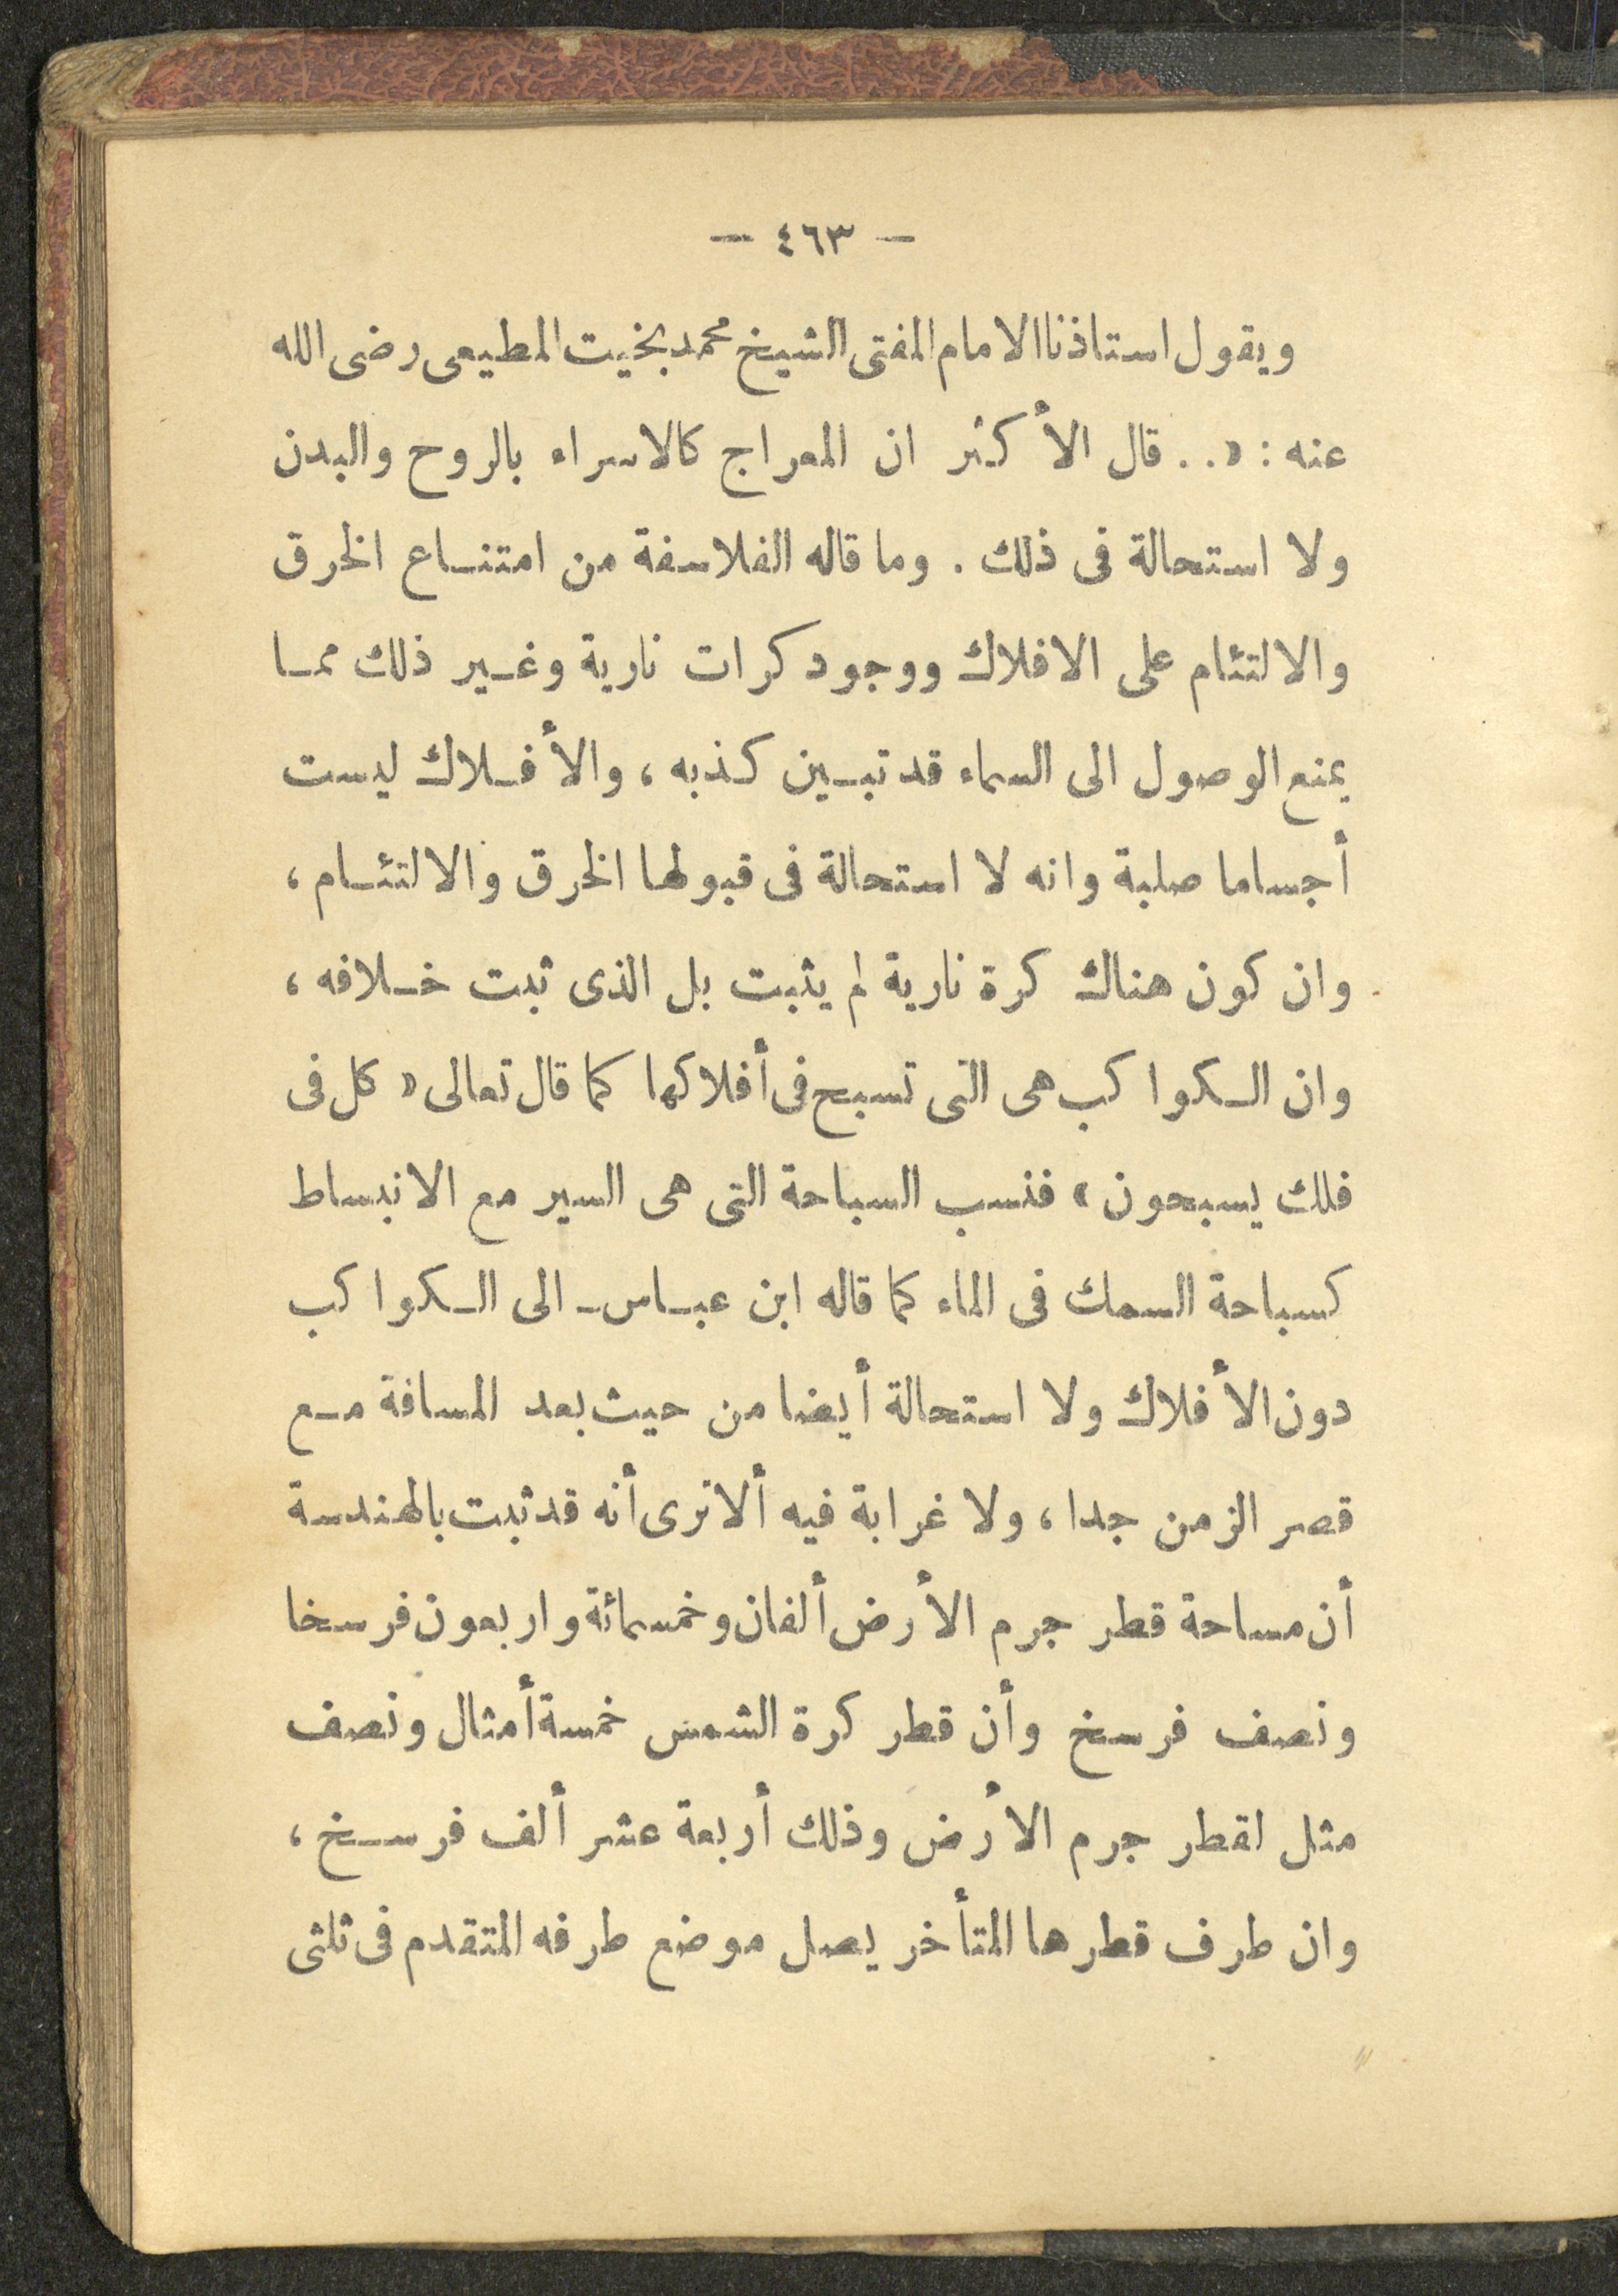 — ٤٦٣ —
ويقول استاذنا الامام المفتى الشيخ محمد بخيت المطيعى رضى الله
عنه : « . . قال الأكثر ان المعراج كالاسراء بالروح والبدن
ولا استحالة فى ذلك . وما قاله الفلاسفة من امتناع الخرق
والالتئام على الافلاك ووجود كرات نارية وغير ذلك مما
يمنع الوصول الى السماء قد تبين كذبه ، والأفلاك ليست
أجساما صلبة وانه لا استحالة فى قبولها الخرق والالتئام ،
وان كون هناك كرة نارية لم يثبت بل الذى ثبت خلافه ،
وان الكواكب هى التى تسبح فى أفلاكها كما قال تعالى « كل فى
فلك يسبحون » فنسب السباحة التى هى السير مع الانبساط
كسباحة السمك فى الماء كما قاله ابن عباس - الى الكواكب
دون الأفلاك ولا استحالة أيضا من حيث بعد المسافة مع
قصر الزمن جدا ، ولا غرابة فيه ألا ترى أنه قد ثبت بالهندسة
أن مساحة قطر جرم الأرض ألفان وخمسمائة واربعون فرسخا
ونصف فرسخ وأن قطر كرة الشمس خمسة أمثال ونصف
مثل لقطر جرم الأرض وذلك أربعة عشر ألف فرسخ ،
وان طرف قطرها المتأخر يصل موضع طرفه المتقدم فى ثلثى